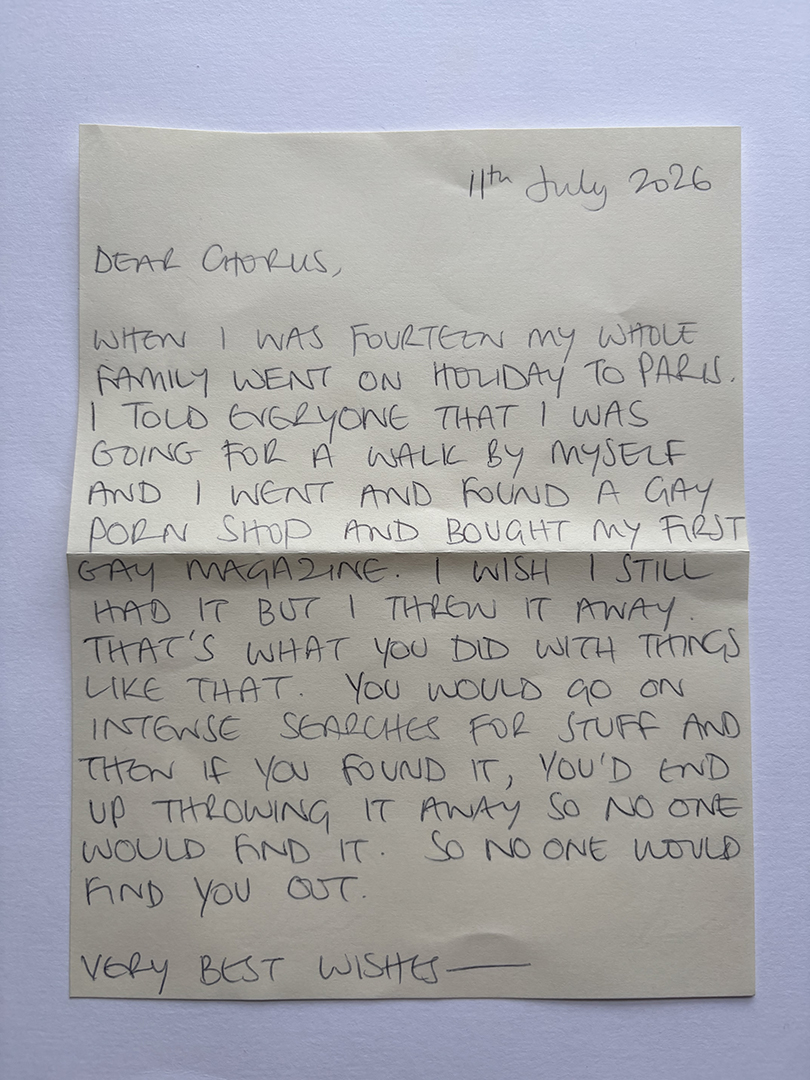 11th July 2026
DEAR CHORUS,
WHEN I WAS FOURTEEN MY WHOLE
FAMILY WENT ON HOLIDAY TO PARIS.
I TOLD EVERYONE THAT I WAS
GOING FOR A WALK BY MYSELF
AND I WENT AND FOUND A GAY
PORN SHOP AND BOUGHT MY FIRST
GAY MAGAZINE. I WISH I STILL
HAD IT BUT I THREW IT AWAY.
THAT'S WHAT YOU DID WITH THINGS
LIKE THAT. YOU WOULD GO ON
INTENSE SEARCHES FOR STUFF AND
THEN IF YOU FOUND IT, YOU'D END
UP THROWING IT AWAY SO NO ONE
WOULD FIND IT. SO NO ONE WOULD
FIND YOU OUT.
VERY BEST WISHES —